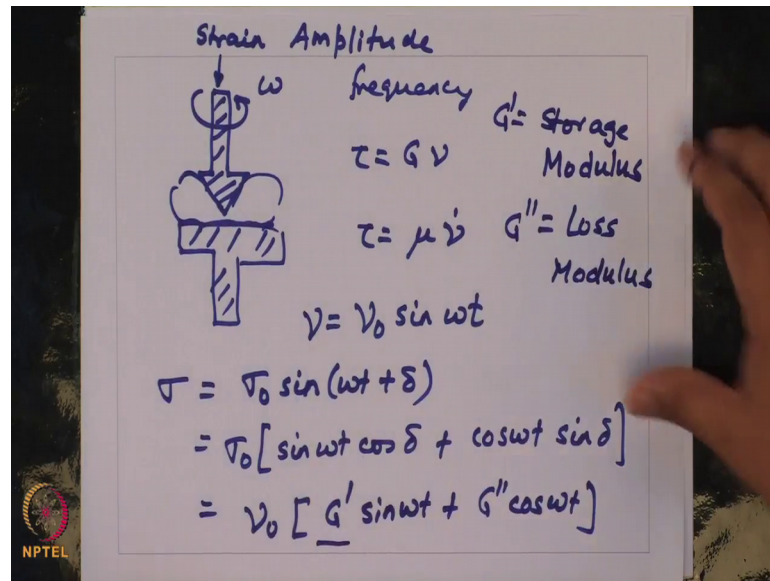 Strain Amplitude
ω
frequency
τ = G ν
τ = μ ν̇
G' = Storage
Modulus
G'' = Loss
Modulus
ν = ν₀ sin ωt
σ = σ₀ sin(ωt + δ)
= σ₀ [sin ωt cos δ + cos ωt sin δ]
= ν₀ [G' sin ωt + G'' cos ωt]
NPTEL